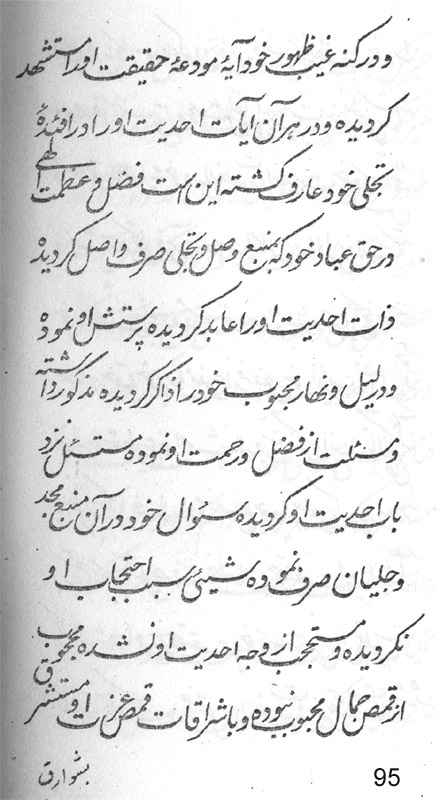 و در کنه غیب ظهور خود آیهٔ مودعهٔ حقیقت او را مستشهد
کردیده و در هر آن آیات احدیت او را در افئدهٔ
تجلی خود عارف کشته این است فضل و عظمت الهی
در حق عباد خود که بمنبع وصل و تجلی صرف واصل کردیده
ذات احدیت او را عابد کردیده پرستش او نموده
و در لیل و نهار محبوب خود را ذاکر کردیده مذکور داشته
و مسئلت از فضل و رحمت او نموده مسئل نزد
باب احدیت او کردیده سئوال خود در آن منبع مجد
و جلیان صرف نموده شیئی سبب احتجاب او
نکردیده و مستحجب از وجه احدیت او نشده محجوب
از قمص جمال محبوب نبوده و باشراقات قمص عزت او مستشرق
بشوارق
95